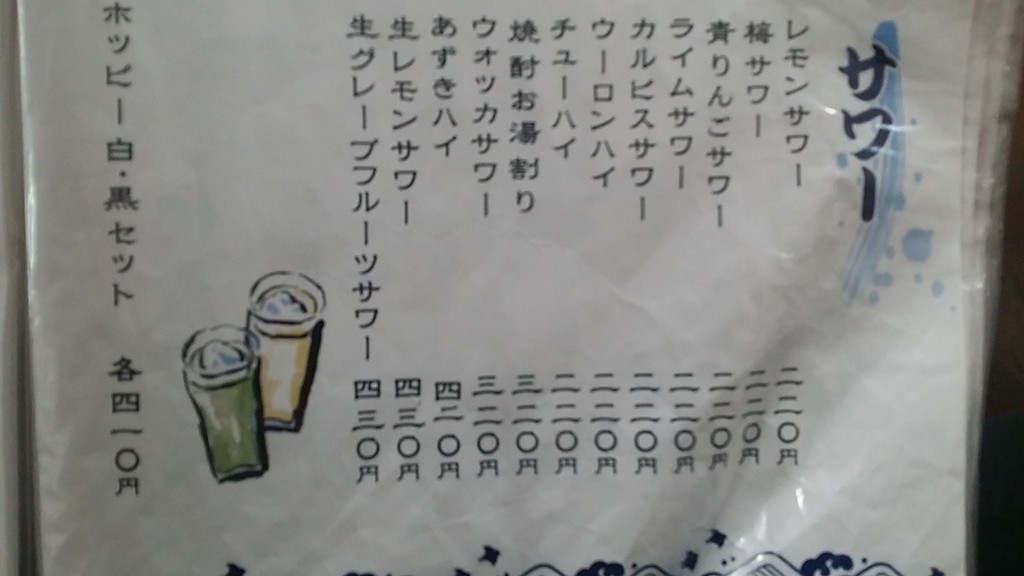 サワー
レモンサワー 二二〇円
梅サワー 二二〇円
青りんごサワー 二二〇円
ライムサワー 二二〇円
カルピスサワー 二二〇円
ウーロンハイ 二二〇円
チューハイ 二二〇円
焼酎お湯割り 三二〇円
ウォッカサワー 三二〇円
あずきハイ 四二〇円
生レモンサワー 四三〇円
生グレープフルーツサワー 四三〇円
ホッピー白・黒セット 各四一〇円